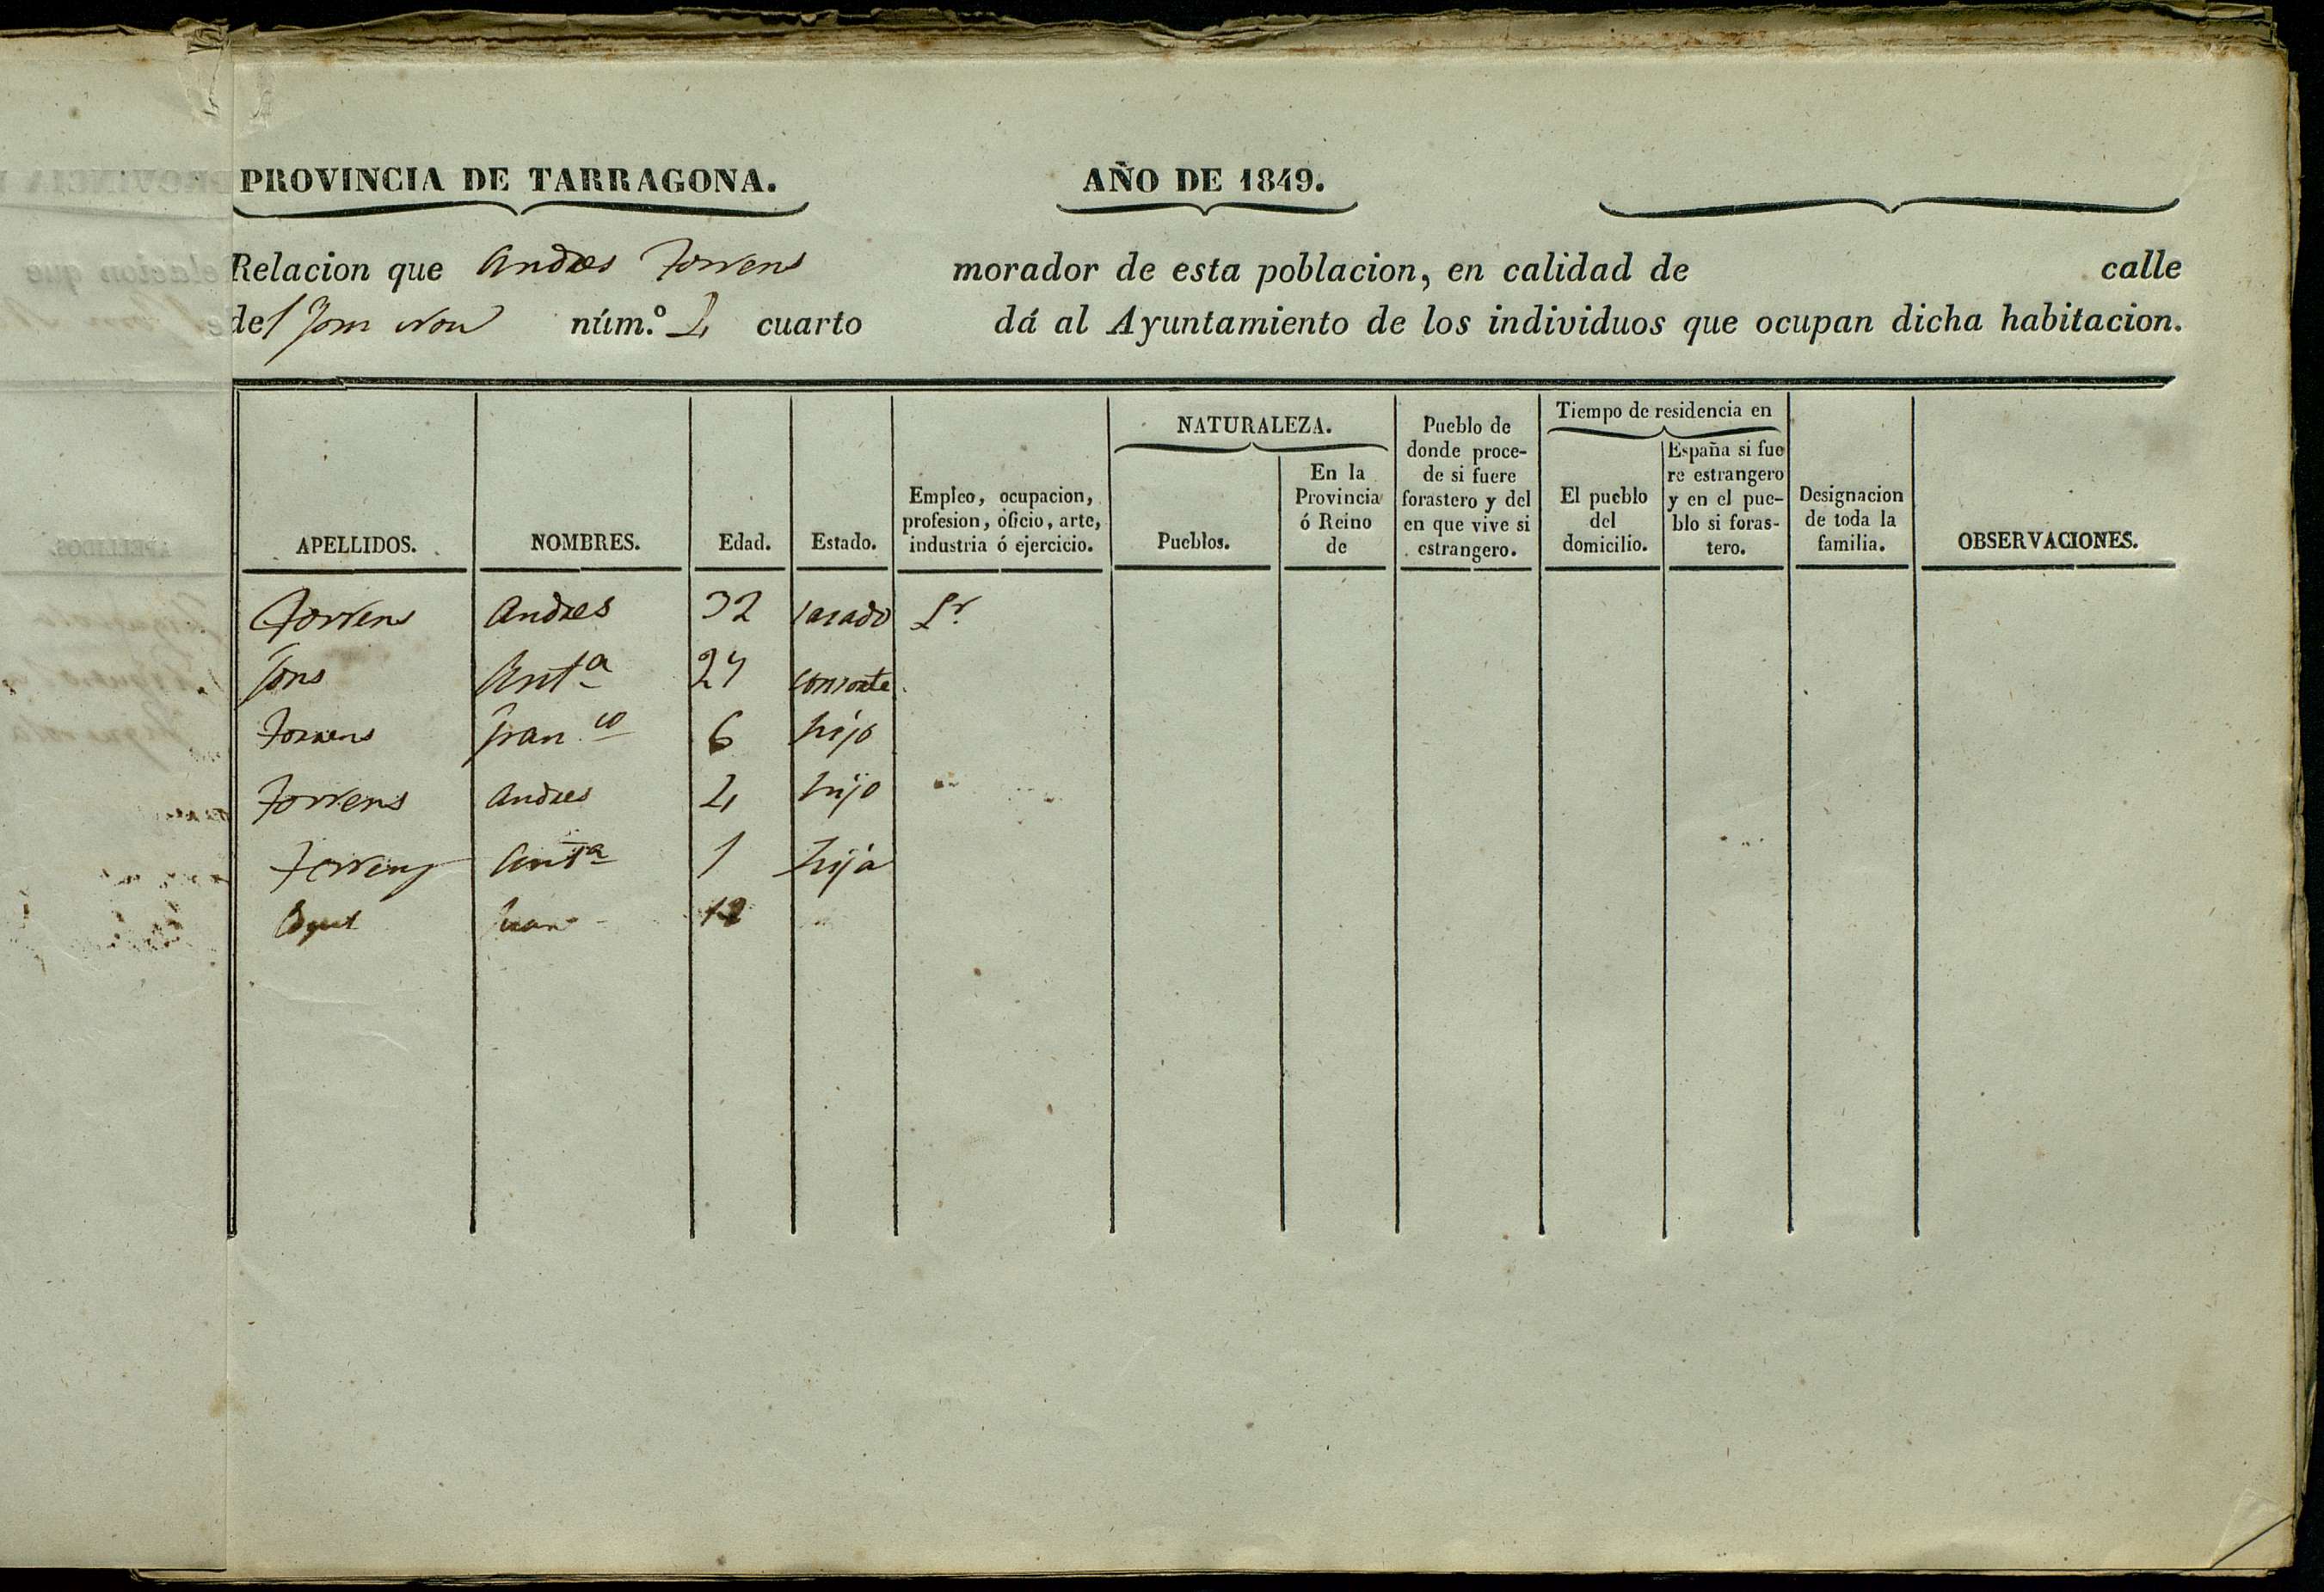 PROVINCIA DE TARRAGONA. AÑO DE 1849.
Relacion que Andres Torrens morador de esta poblacion, en calidad de calle
del Forn Nou núm.º 4 cuarto dá al Ayuntamiento de los individuos que ocupan dicha habitacion.
APELLIDOS.
NOMBRES.
Edad.
Estado.
Empleo, ocupacion,
profesion, oficio, arte,
industria ó ejercicio.
NATURALEZA.
Pueblos.
En la
Provincia
ó Reino
de
Pueblo de
donde proce-
de si fuere
forastero y del
en que vive si
estrangero.
Tiempo de residencia en
El pueblo
del
domicilio.
España si fue
re estrangero
y en el pue-
blo si foras-
tero.
Designacion
de toda la
familia.
OBSERVACIONES.
Torrens Andres 32 casado
Fons Ant.a 27 consorte
Torrens Fran.co 6 hijo
Torrens Andres 4 hijo
Torrens Ant.a 1 hija
Juan 12